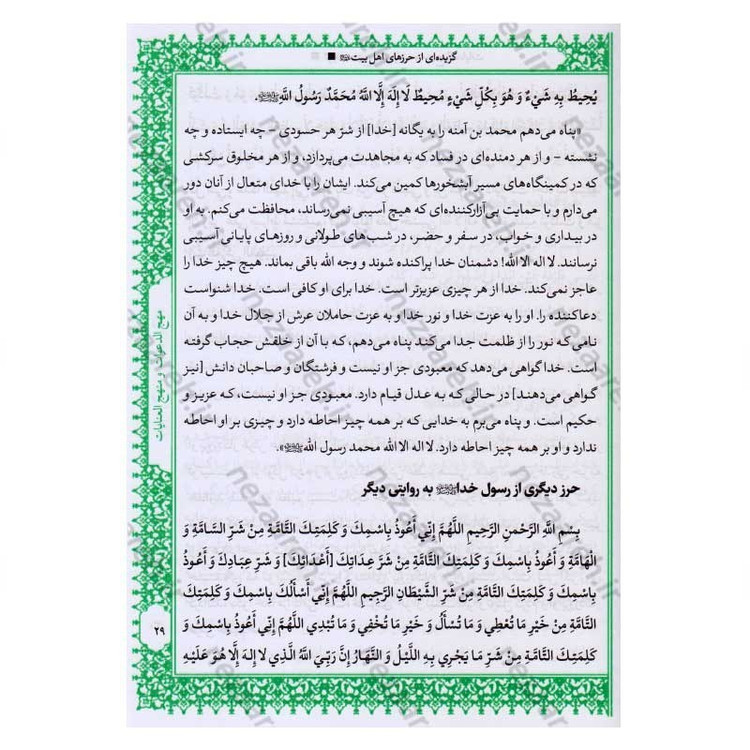 گزیده‌ای از حرزهای اهل بیت ■
یُحِیطُ بِهِ شَيْءٌ وَ هُوَ بِكُلِّ شَيْءٍ مُحِيطٌ لَا إِلَهَ إِلَّا اللَّهُ مُحَمَّدٌ رَسُولُ اللَّهِ ﷺ.
«پناه می‌دهم محمد بن آمنه را به یگانه [خدا] از شرّ هر حسودی - چه ایستاده و چه
نشسته - و از هر دمنده‌ای در فساد که به مجاهدت می‌پردازد، و از هر مخلوق سرکشی
که در کمینگاه‌های مسیر آبشخورها کمین می‌کند. ایشان را با خدای متعال از آنان دور
می‌دارم و با حمایت بی‌آزارکننده‌ای که هیچ آسیبی نمی‌رساند، محافظت می‌کنم. به او
در بیداری و خواب، در سفر و حضر، در شب‌های طولانی و روزهای پایانی آسیبی
نرسانند. لا اله الا الله! دشمنان خدا پراکنده شوند و وجه الله باقی بماند. هیچ چیز خدا را
عاجز نمی‌کند. خدا از هر چیزی عزیزتر است. خدا برای او کافی است. خدا شنواست
دعاکننده را. او را به عزت خدا و نور خدا و به عزت حاملان عرش از جلال خدا و به آن
نامی که نور را از ظلمت جدا می‌کند پناه می‌دهم، که با آن از خلقش حجاب گرفته
است. خدا گواهی می‌دهد که معبودی جز او نیست و فرشتگان و صاحبان دانش [نیز
گواهی می‌دهند] در حالی که به عدل قیام دارد. معبودی جز او نیست، که عزیز و
حکیم است. و پناه می‌برم به خدایی که بر همه چیز احاطه دارد و چیزی بر او احاطه
ندارد و او بر همه چیز احاطه دارد. لا اله الا الله محمد رسول الله ﷺ».
حرز دیگری از رسول خدا ﷺ به روایتی دیگر
بِسْمِ اللَّهِ الرَّحْمنِ الرَّحِيمِ اللَّهُمَّ إِنِّي أَعُوذُ بِاسْمِكَ وَ كَلِمَتِكَ التَّامَّةِ مِنْ شَرِّ السَّامَّةِ وَ
الْهَامَّةِ وَ أَعُوذُ بِاسْمِكَ وَ كَلِمَتِكَ التَّامَّةِ مِنْ شَرِّ عِذَاتِكَ [أَعْدَائِكَ] وَ شَرِّ عِبَادِكَ وَ أَعُوذُ
بِاسْمِكَ وَ كَلِمَتِكَ التَّامَّةِ مِنْ شَرِّ الشَّيْطَانِ الرَّجِيمِ اللَّهُمَّ إِنِّي أَسْأَلُكَ بِاسْمِكَ وَ كَلِمَتِكَ
التَّامَّةِ مِنْ خَيْرِ مَا تُعْطِي وَ مَا تُسْأَلُ وَ خَيْرِ مَا تُخْفِي وَ مَا تُبْدِي اللَّهُمَّ إِنِّي أَعُوذُ بِاسْمِكَ وَ
كَلِمَتِكَ التَّامَّةِ مِنْ شَرِّ مَا يَجْرِي بِهِ اللَّيْلُ وَ النَّهَارُ إِنَّ رَبِّيَ اللَّهُ الَّذِي لَا إِلهَ إِلَّا هُوَ عَلَيْهِ
مهج الدعوات و منهج العنایات
۲۹
nezaareh.ir